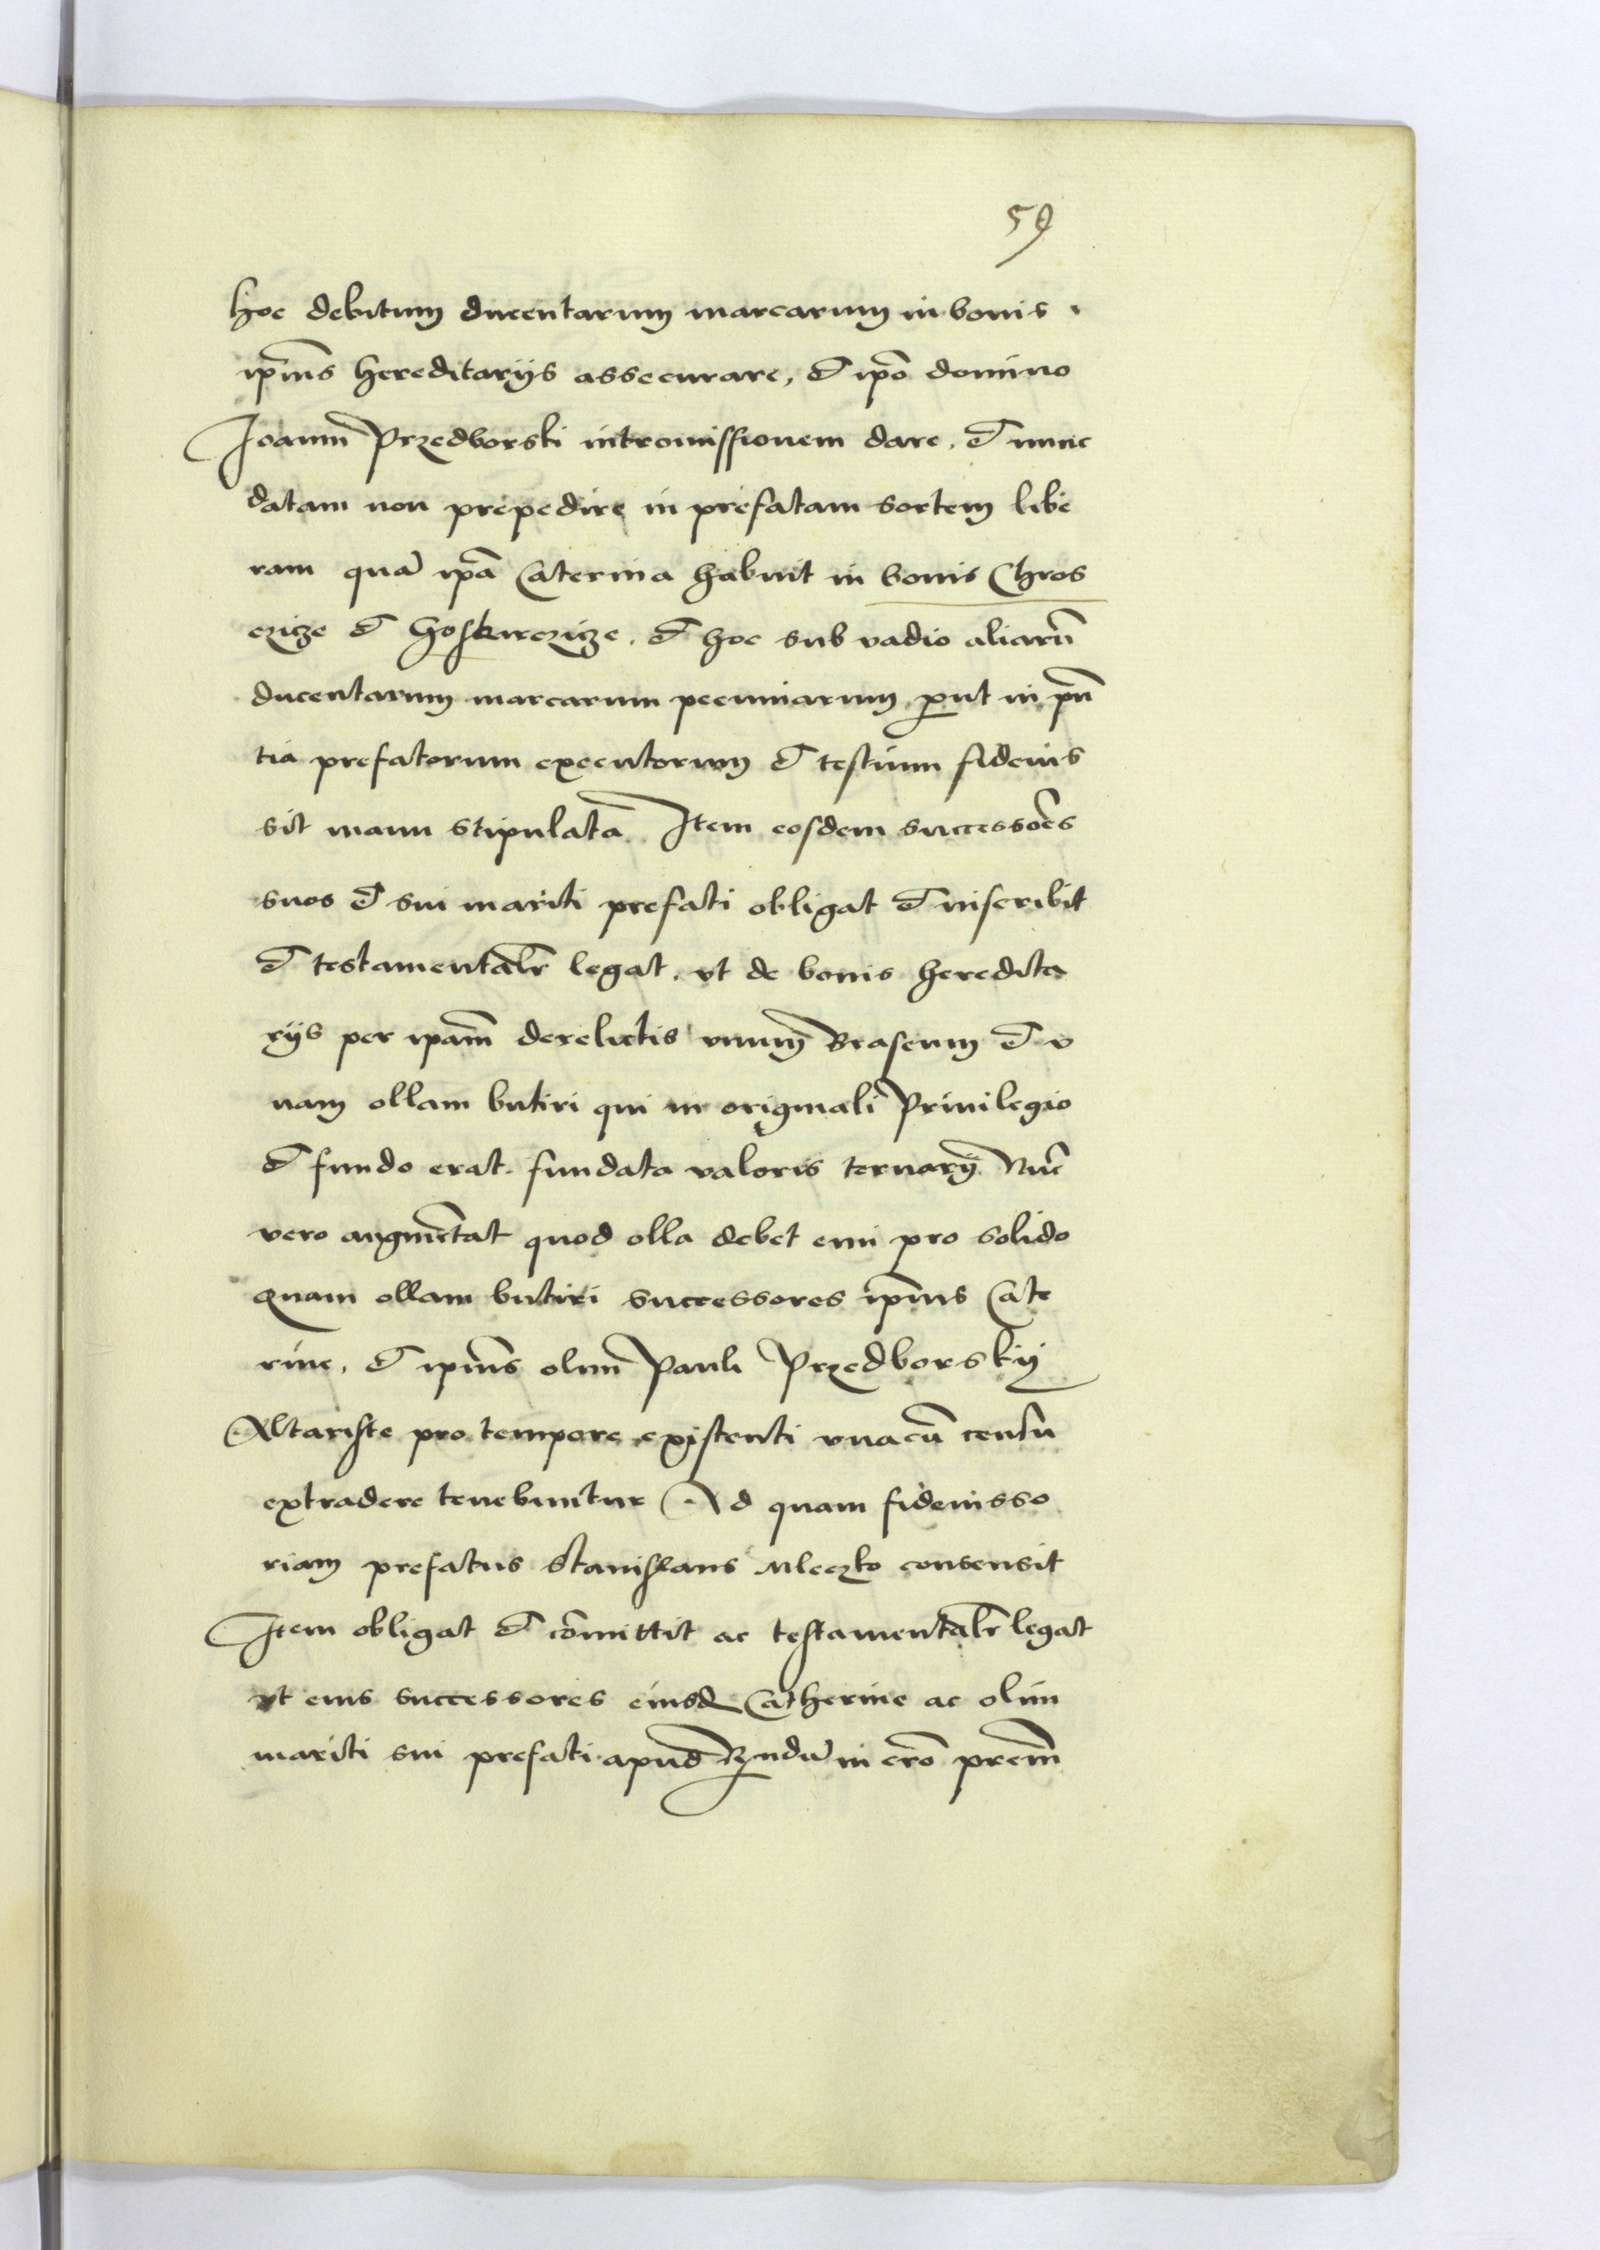 59
hoc debitum ducentarum marcarum in bonis
ip̄ius hereditarijs assecurare, et ip̄o domino
Joanni Przedborski intromissionem dare. et nunc
datam non prepedire in prefatam sortem libe
ram quā ip̄a Caterina habuit in bonis Chros
czicze et Goskarczicze. et hoc sub vadio aliarū
ducentarum marcarum pecuniarum put in pn̄
tia prefatorum executorum et testium fideius
sit manu stipulata Item eosdem successōes
suos et sui mariti prefati obligat et inscribit
et testamentalr̄ legat. vt de bonis heredita
rijs per ip̄am derelictis vnum Braseum et v
nam ollam butiri qui in originali Priuilegio
et fundo erat. fundata valoris ternarij Nūc
vero augmētat quod olla debet emi pro solido
Quam ollam butiri successores ip̄ius Cate
rine, et ip̄ius olim Pauli Przedborskij
Altariste pro tempore existenti vnacū censu
extradere tenebuntur Ad quam fideiusso
riam prefatus Stanislaus Mleczko consensit
Item obligat et cōmittit ac testamentalr̄ legat
vt eius successores eiusd Catherine ac olim
mariti sui prefati apud in